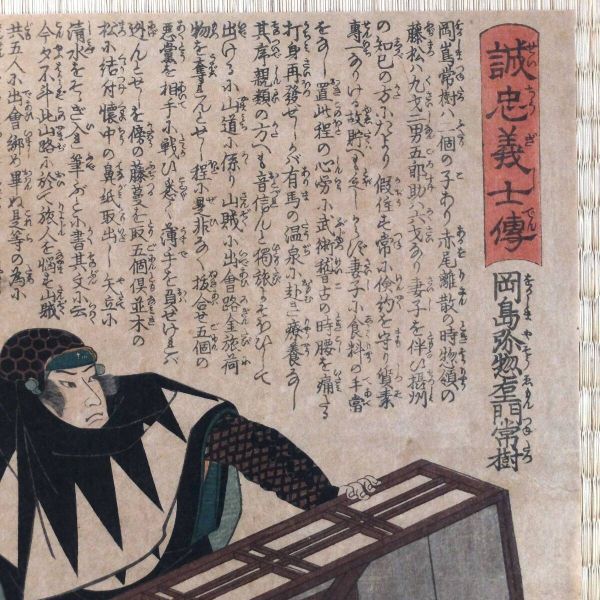 誠忠義士傳
岡島弥惣左エ門常樹
岡嶌常樹ハ二個の子あり赤尾離散の時惣領の
藤松ハ九才二男五郎助ハ六才なり妻子を伴ひ摂州
の知己の方にたより假住も常に倹約を守り質素
専一なりける故貯も妻子に食料の手當
をなし置此程の心労に武術稽古の時腰を痛る
打身再發せしかバ有馬の温泉に赴き療養なし
其序親類の方へも音信んと獨旅して
出ける小山道に係り山賊に出會路金旅荷
物を奪んとせし程に是非なく抜合せ五個の
悪黨を相手に戦ひ悉く薄手を負せけれバ
迯んとせしを傍の藤蔓を取五個倶並木の
松に結付懐中の鼻紙取出し矢立に
清水をそゝぎ入れ筆ぶとに書其文に云
今夕不斗此山路に於て旅人を悩す山賊
共五人に出會綁め畢ぬ是等の為に